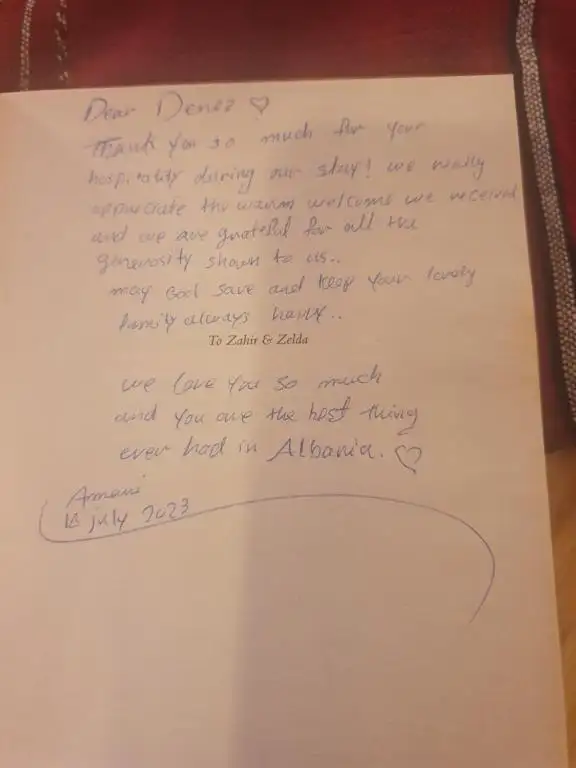 Dear Denes ♡
Thank you so much for your
hospitality during our stay! we really
appreciate the warm welcome we received
and we are grateful for all the
generosity shown to us..
may God save and keep your lovely
family always happy..
To Zahir & Zelda
we love you so much
and you are the best thing
ever had in Albania. ♡
Armani
july 2023